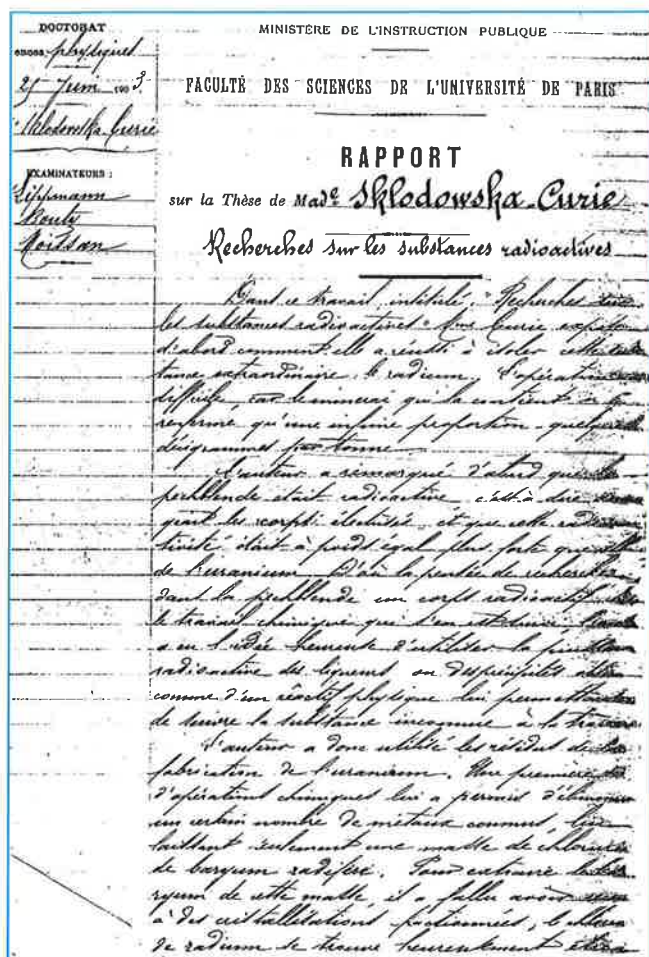 DOCTORAT
physiques
25 Juin 1903.
Sklodowska-Curie
EXAMINATEURS :
Lippmann
Bouty
Moissan
MINISTÈRE DE L'INSTRUCTION PUBLIQUE
FACULTÉ DES SCIENCES DE L'UNIVERSITÉ DE PARIS
RAPPORT
sur la Thèse de Made Sklodowska-Curie
Recherches sur les substances radioactives
Dans ce travail intitulé "Recherches sur
les substances radioactives" Mme Curie expose
d'abord comment elle a réussi à isoler cette
tance extraordinaire le radium. L'opération
difficile, car le minerai qui la contient n'en
renferme qu'une infime proportion quelques
décigrammes par tonne
L'auteur a remarqué d'abord que la
pechblende était radioactive c'est à dire
geant les corps électrisés, et que cette radioac
tivité était à poids égal plus forte que celle
de l'uranium. D'où la pensée de rechercher
dans la pechblende un corps radioactif
le travail chimique qui s'en est suivi,
a eu l'idée heureuse d'utiliser la
radioactive des liqueurs ou des précipités
comme d'un réactif physique lui permettant
de suivre la substance inconnue à la
L'auteur a donc utilisé les résidus de la
fabrication de l'uranium. Une première
d'opérations chimiques lui a permis d'éliminer
un certain nombre de métaux connus, lui
laissant seulement une masse de chlorure
de baryum radifère. Pour extraire le
ryum de cette masse, il a fallu avoir
à des cristallisations fractionnées, le chlorure
de radium se trouve heureusement être